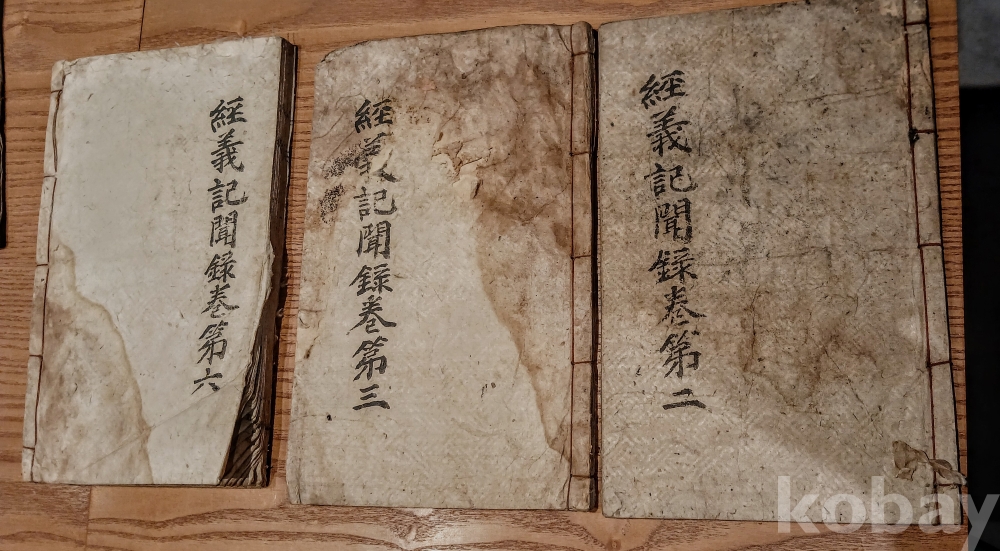 經義記聞録卷第二
經義記聞録卷第三
經義記聞録卷第六
kobay